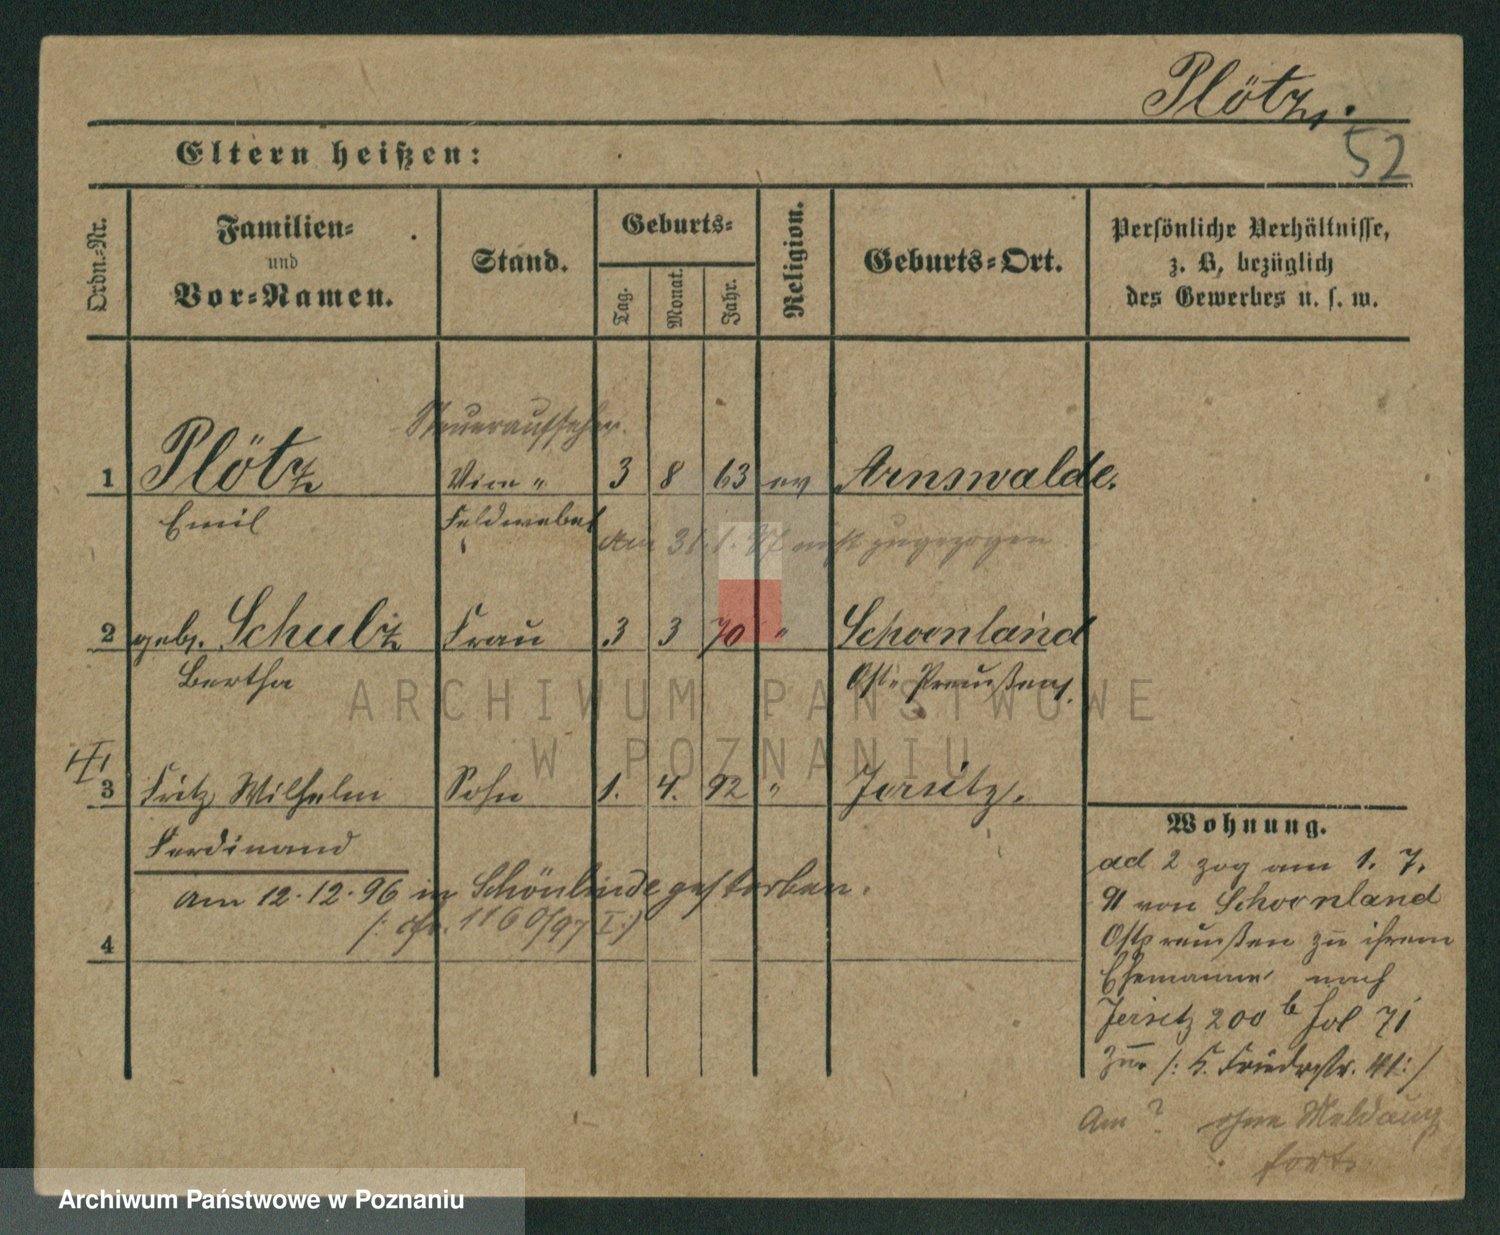 Plötz.
52
Eltern heißen:
Ordn.-Nr.
Familien-
und
Vor-Namen.
Stand.
Geburts-
Tag.
Monat.
Jahr.
Religion.
Geburts-Ort.
Persönliche Verhältnisse,
z. B, bezüglich
des Gewerbes u. s. w.
Steueraufseher.
1 Plötz Vice " 3 8 63 ev Arnswalde.
Emil Feldwebel
Am 31.1.97 zugezogen
2 geb. Schulz Frau 3 3 70 " Schoenland
Bertha Ost-Preußen.
3 Fritz Wilhelm Sohn 1. 4. 92 " Jersitz.
Ferdinand
am 12.12.96 in Schönlinde gestorben.
/: cfr. 1160/97 I :/
4
Wohnung.
ad 2 zog am 1. 7.
91 von Schoenland
Ostpreußen zu ihrem
Ehemanne nach
Jersitz 200 b fol 71
zur /: K. Friedrstr. :/
Am ? ohne Meldung
fort.
ARCHIWUM PAŃSTWOWE
W POZNANIU
Archiwum Państwowe w Poznaniu